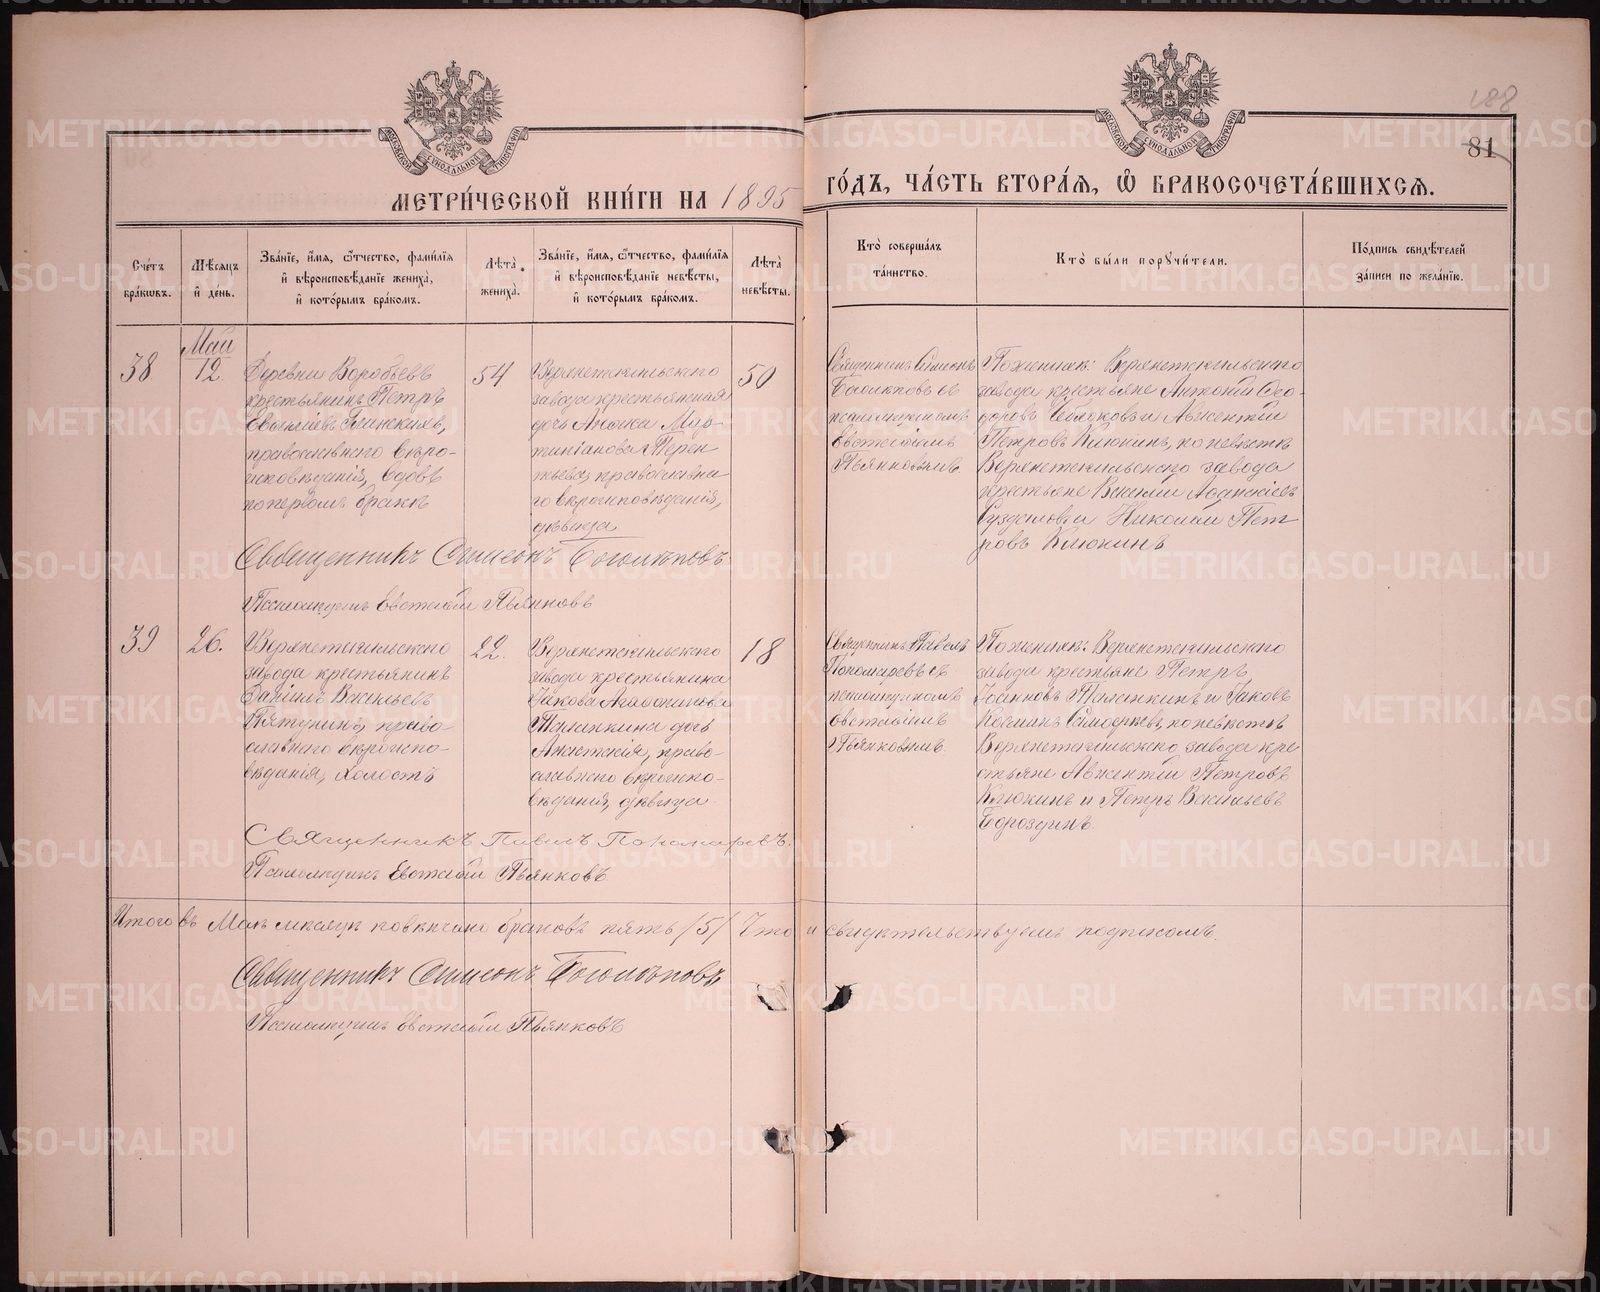 188
81
МЕТРИ́ЧЕСКОЙ КНИ́ГИ НА 1895
ГО́ДЪ, ЧА́СТЬ ВТОРА́Я, Ѡ БРАКОСОЧЕТА́ВШИХСЯ.
Сче́тъ бра́кѡвъ.
Мѣ́сяцъ и де́нь.
Зва́нїе, и́мя, ѻ҆́тчество, фами́лїя и вѣроисповѣ́данїе жениха̀, и кото́рымъ бра́комъ.
Лѣ́та жениха̀.
Зва́нїе, и́мя, ѻ҆́тчество, фами́лїя и вѣроисповѣ́данїе невѣ́сты, и кото́рымъ бра́комъ.
Лѣ́та невѣ́сты.
Кто̀ соверша́лъ та́инство.
Кто̀ бы́ли поручи́тели.
По́дпись свидѣ́телей за́писи по жела́нїю.
38
Май
12.
Деревни Воробьевъ
крестьянинъ Петръ
Глинскихъ,
православнаго вѣро-
исповѣданія, вдовъ
по первомъ бракѣ
54
Верхнетагильскаго
завода крестьянская
дочь Мар-
тиніанова Терен
тьева, православна
го вѣроисповѣданія,
дѣвица
50
Священникъ Симеонъ
Боголѣповъ съ
псаломщикомъ
Евстафіемъ
Пьянковымъ.
По женихѣ: Верхнетагильскаго
завода крестьяне Антоній Ѳео-
доровъ и Авксентій
Петровъ Клюкинъ, по невѣстѣ
Верхнетагильскаго завода
крестьяне Василій
и Николай Пет
ровъ Клюкинъ
Священникъ Симеонъ Боголѣповъ
Псаломщикъ Евстафій Пьянковъ
39
26.
Верхнетагильскаго
завода крестьянинъ
Васильевъ
право-
славнаго вѣроиспо-
вѣданія, холостъ
22.
Верхнетагильскаго
завода крестьянина
Іакова Агафоникова
дочь
право-
славнаго вѣроиспо-
вѣданія, дѣвица.
18
Священникъ Павелъ
Пономаревъ съ
псаломщикомъ
Евстафіемъ
Пьянковымъ.
По женихѣ: Верхнетагильскаго
завода крестьяне Петръ
Іоанновъ и Іаковъ
по невѣстѣ
Верхнетагильскаго завода кре
стьяне Авксентій Петровъ
Клюкинъ и Петръ Васильевъ
Бороздинъ.
Священникъ Павелъ Пономаревъ.
Псаломщикъ Евстафій Пьянковъ
Итого въ Маѣ мѣсяцѣ повѣнчано браковъ пять /5/ Что и свидѣтельствуемъ подписомъ.
Священникъ Симеонъ Боголѣповъ
Псаломщикъ Евстафій Пьянковъ
METRIKI.GASO-URAL.RU